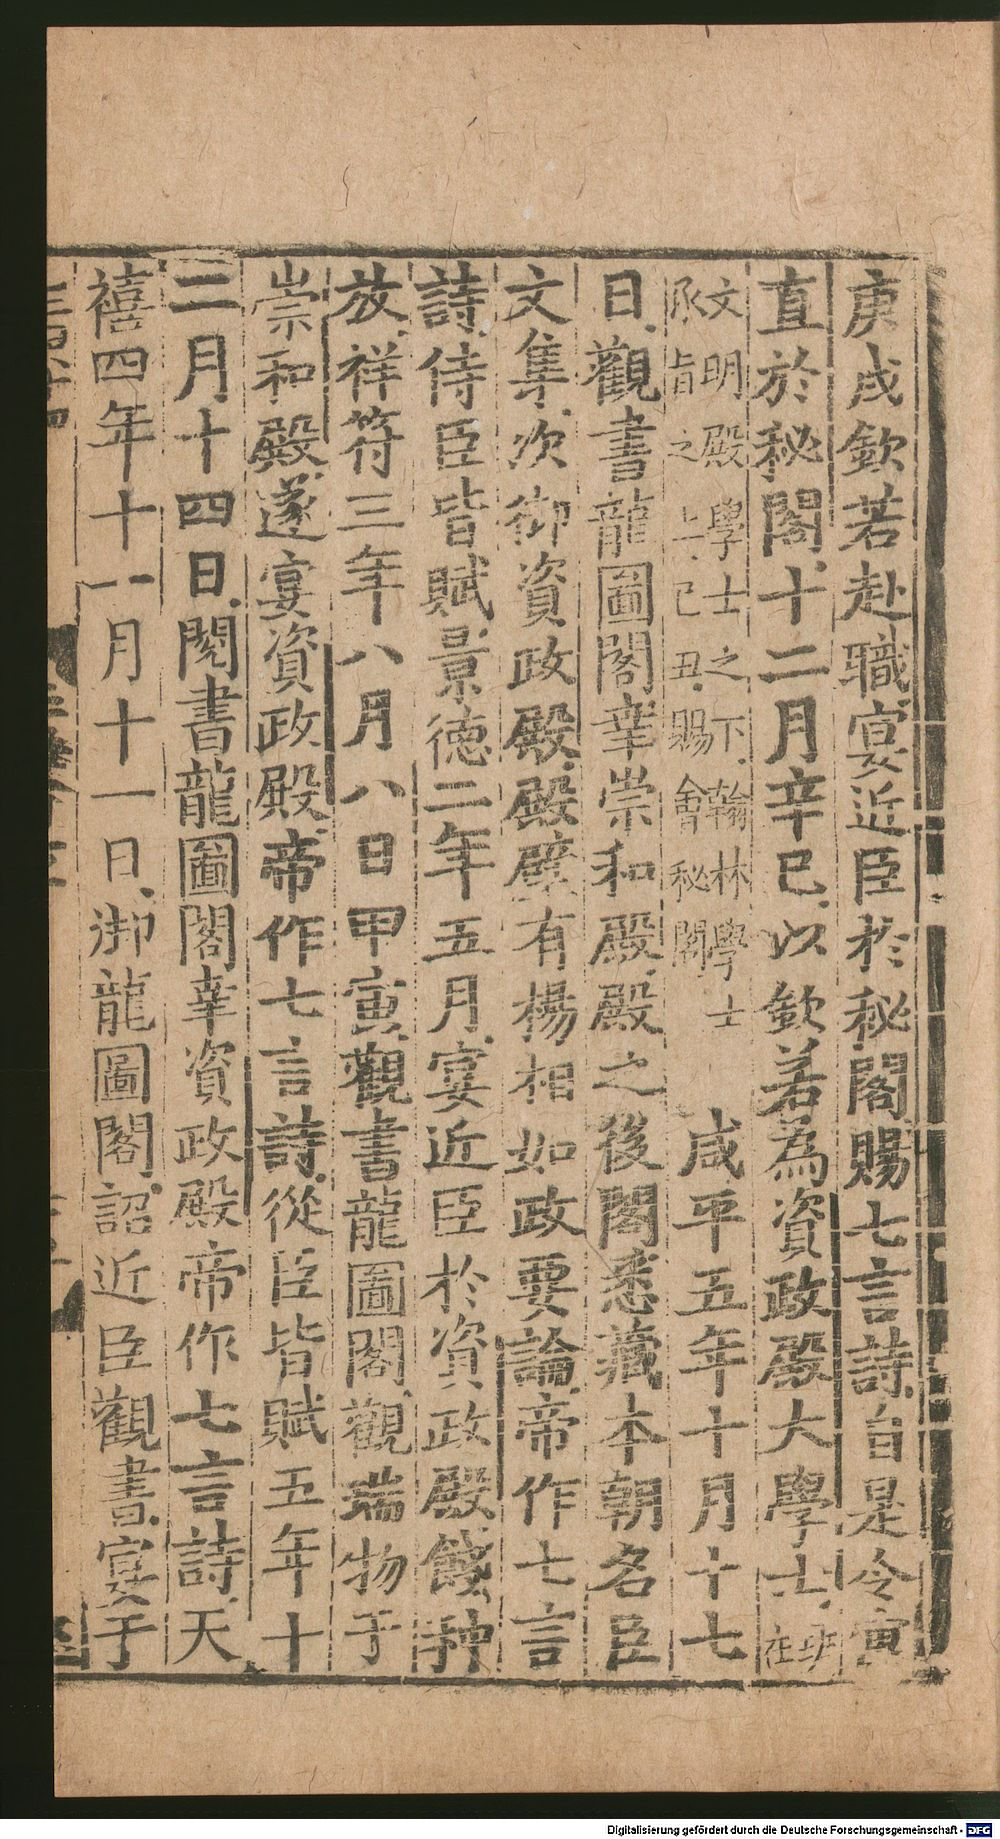 庚戌欽若赴職宴近臣於秘閣賜七言詩自是令寅
直於秘閣十二月辛巳以欽若為資政殿大學士班在
文明殿學士之下翰林學士
承旨之上己丑賜會秘閣
咸平五年十月十七
日觀書龍圖閣幸崇和殿殿之後閣悉藏本朝名臣
文集次御資政殿殿壁有楊相如政要論帝作七言
詩侍臣皆賦景德二年五月宴近臣於資政殿餞种
放祥符三年八月八日甲寅觀書龍圖閣觀瑞物于
崇和殿遂宴資政殿帝作七言詩從臣皆賦五年十
二月十四日閱書龍圖閣幸資政殿帝作七言詩天
禧四年十一月十一日御龍圖閣詔近臣觀書宴于
Digitalisierung gefördert durch die Deutsche Forschungsgemeinschaft - DFG